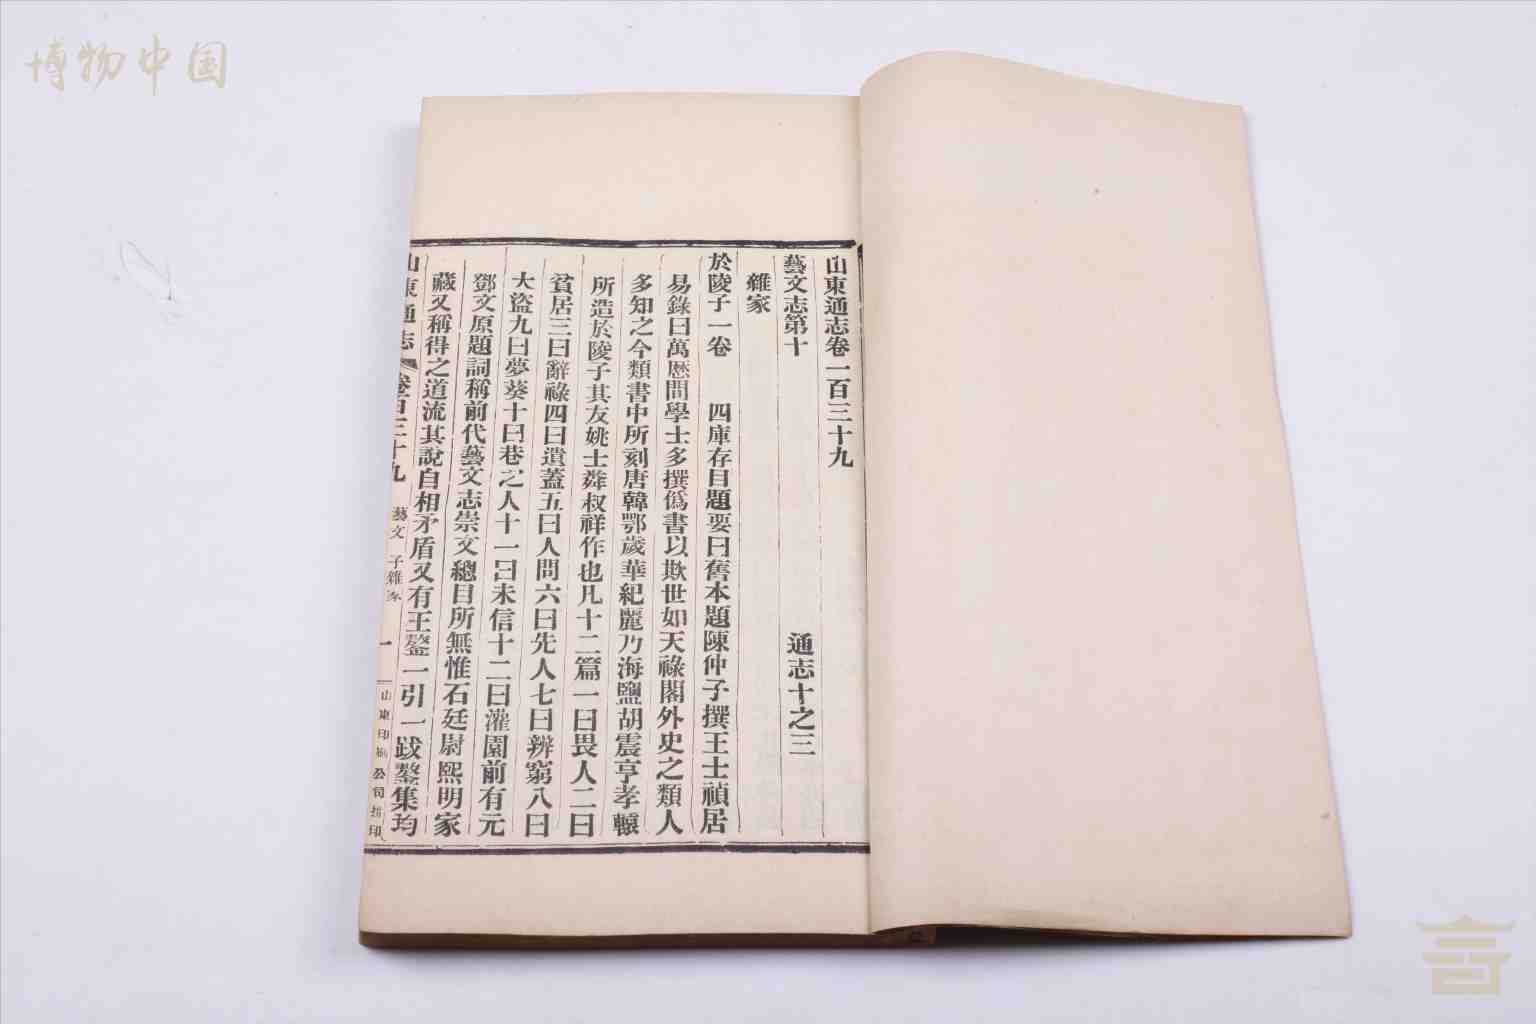 博物中国
山東通志卷一百三十九
藝文志第十 通志十之三
雜家
於陵子一卷 四庫存目題要曰舊本題陳仲子撰王士禎居
易錄曰萬歷間學士多撰僞書以欺世如天祿閣外史之類人
多知之今類書中所刻唐韓鄂歲華紀麗乃海鹽胡震亨孝轅
所造於陵子其友姚士粦叔祥作也凡十二篇一曰畏人二曰
貧居三曰辭祿四曰遺蓋五曰人問六曰先人七曰辨窮八曰
大盜九曰夢葵十曰巷之人十一曰未信十二曰灌園前有元
鄧文原題詞稱前代藝文志崇文總目所無惟石廷尉熙明家
藏又稱得之道流其說自相矛盾又有王鏊一引一跋鏊集均
山東通志 卷百三十九 藝文 子雜家 一 山東印刷公司排印